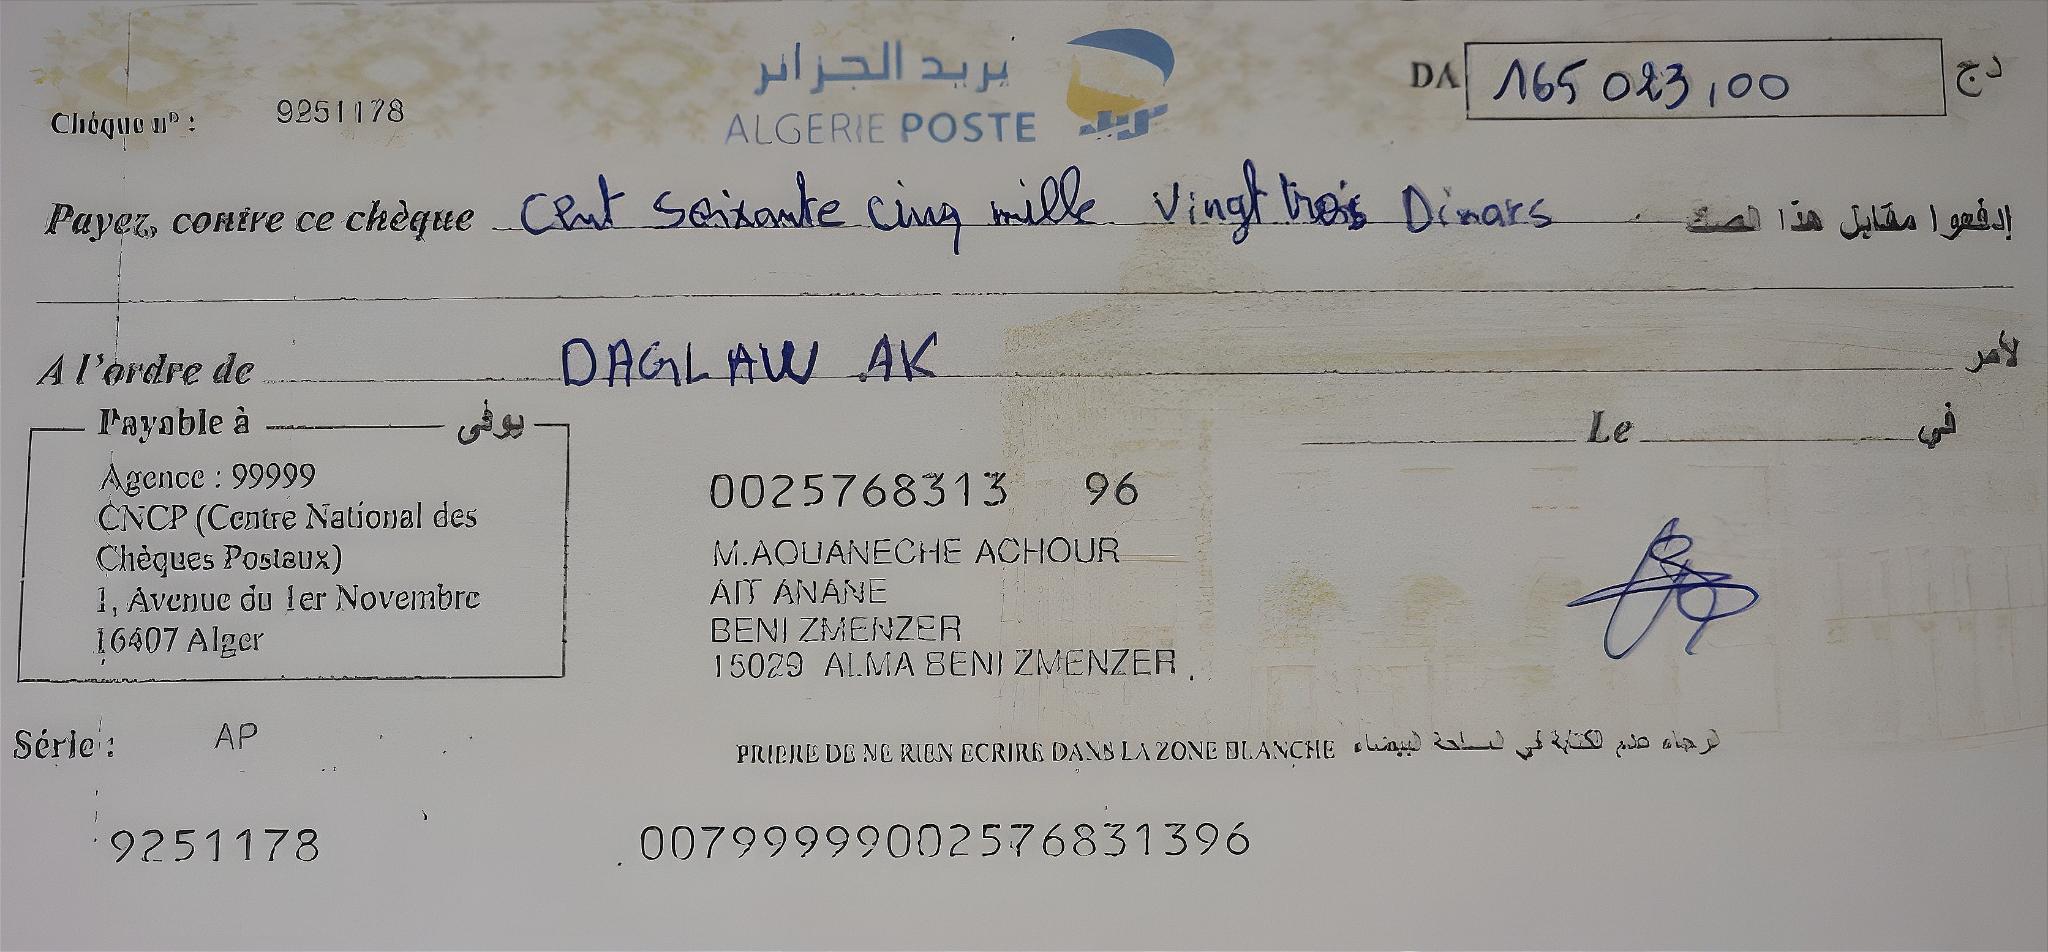 بريد الجزائر
ALGERIE POSTE
بريد
DA 165 023,00 دج
Chèque nº : 9251178
Payez, contre ce chèque Cent Soixante cinq mille Vingt trois Dinars إدفعوا مقابل هذا الصك
A l'ordre de DAGLAW AK لأمر
Payable à يوفى
Le في
Agence : 99999
CNCP (Centre National des
Chèques Postaux)
1, Avenue du 1er Novembre
16407 Alger
0025768313 96
M.AOUANECHE ACHOUR
AIT ANANE
BENI ZMENZER
15029 ALMA BENI ZMENZER
Série : AP
PRIERE DE NE RIEN ECRIRE DANS LA ZONE BLANCHE لرجاء عدم لكتابة في لساحة لبيضاء
9251178 00799999002576831396